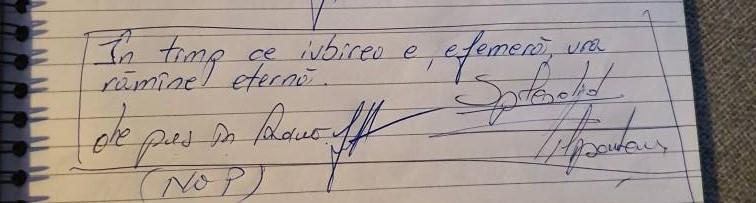 În timp ce iubirea e, efemeră, ura
rămîne eternă.
Splendid
de pus în
(NOP)